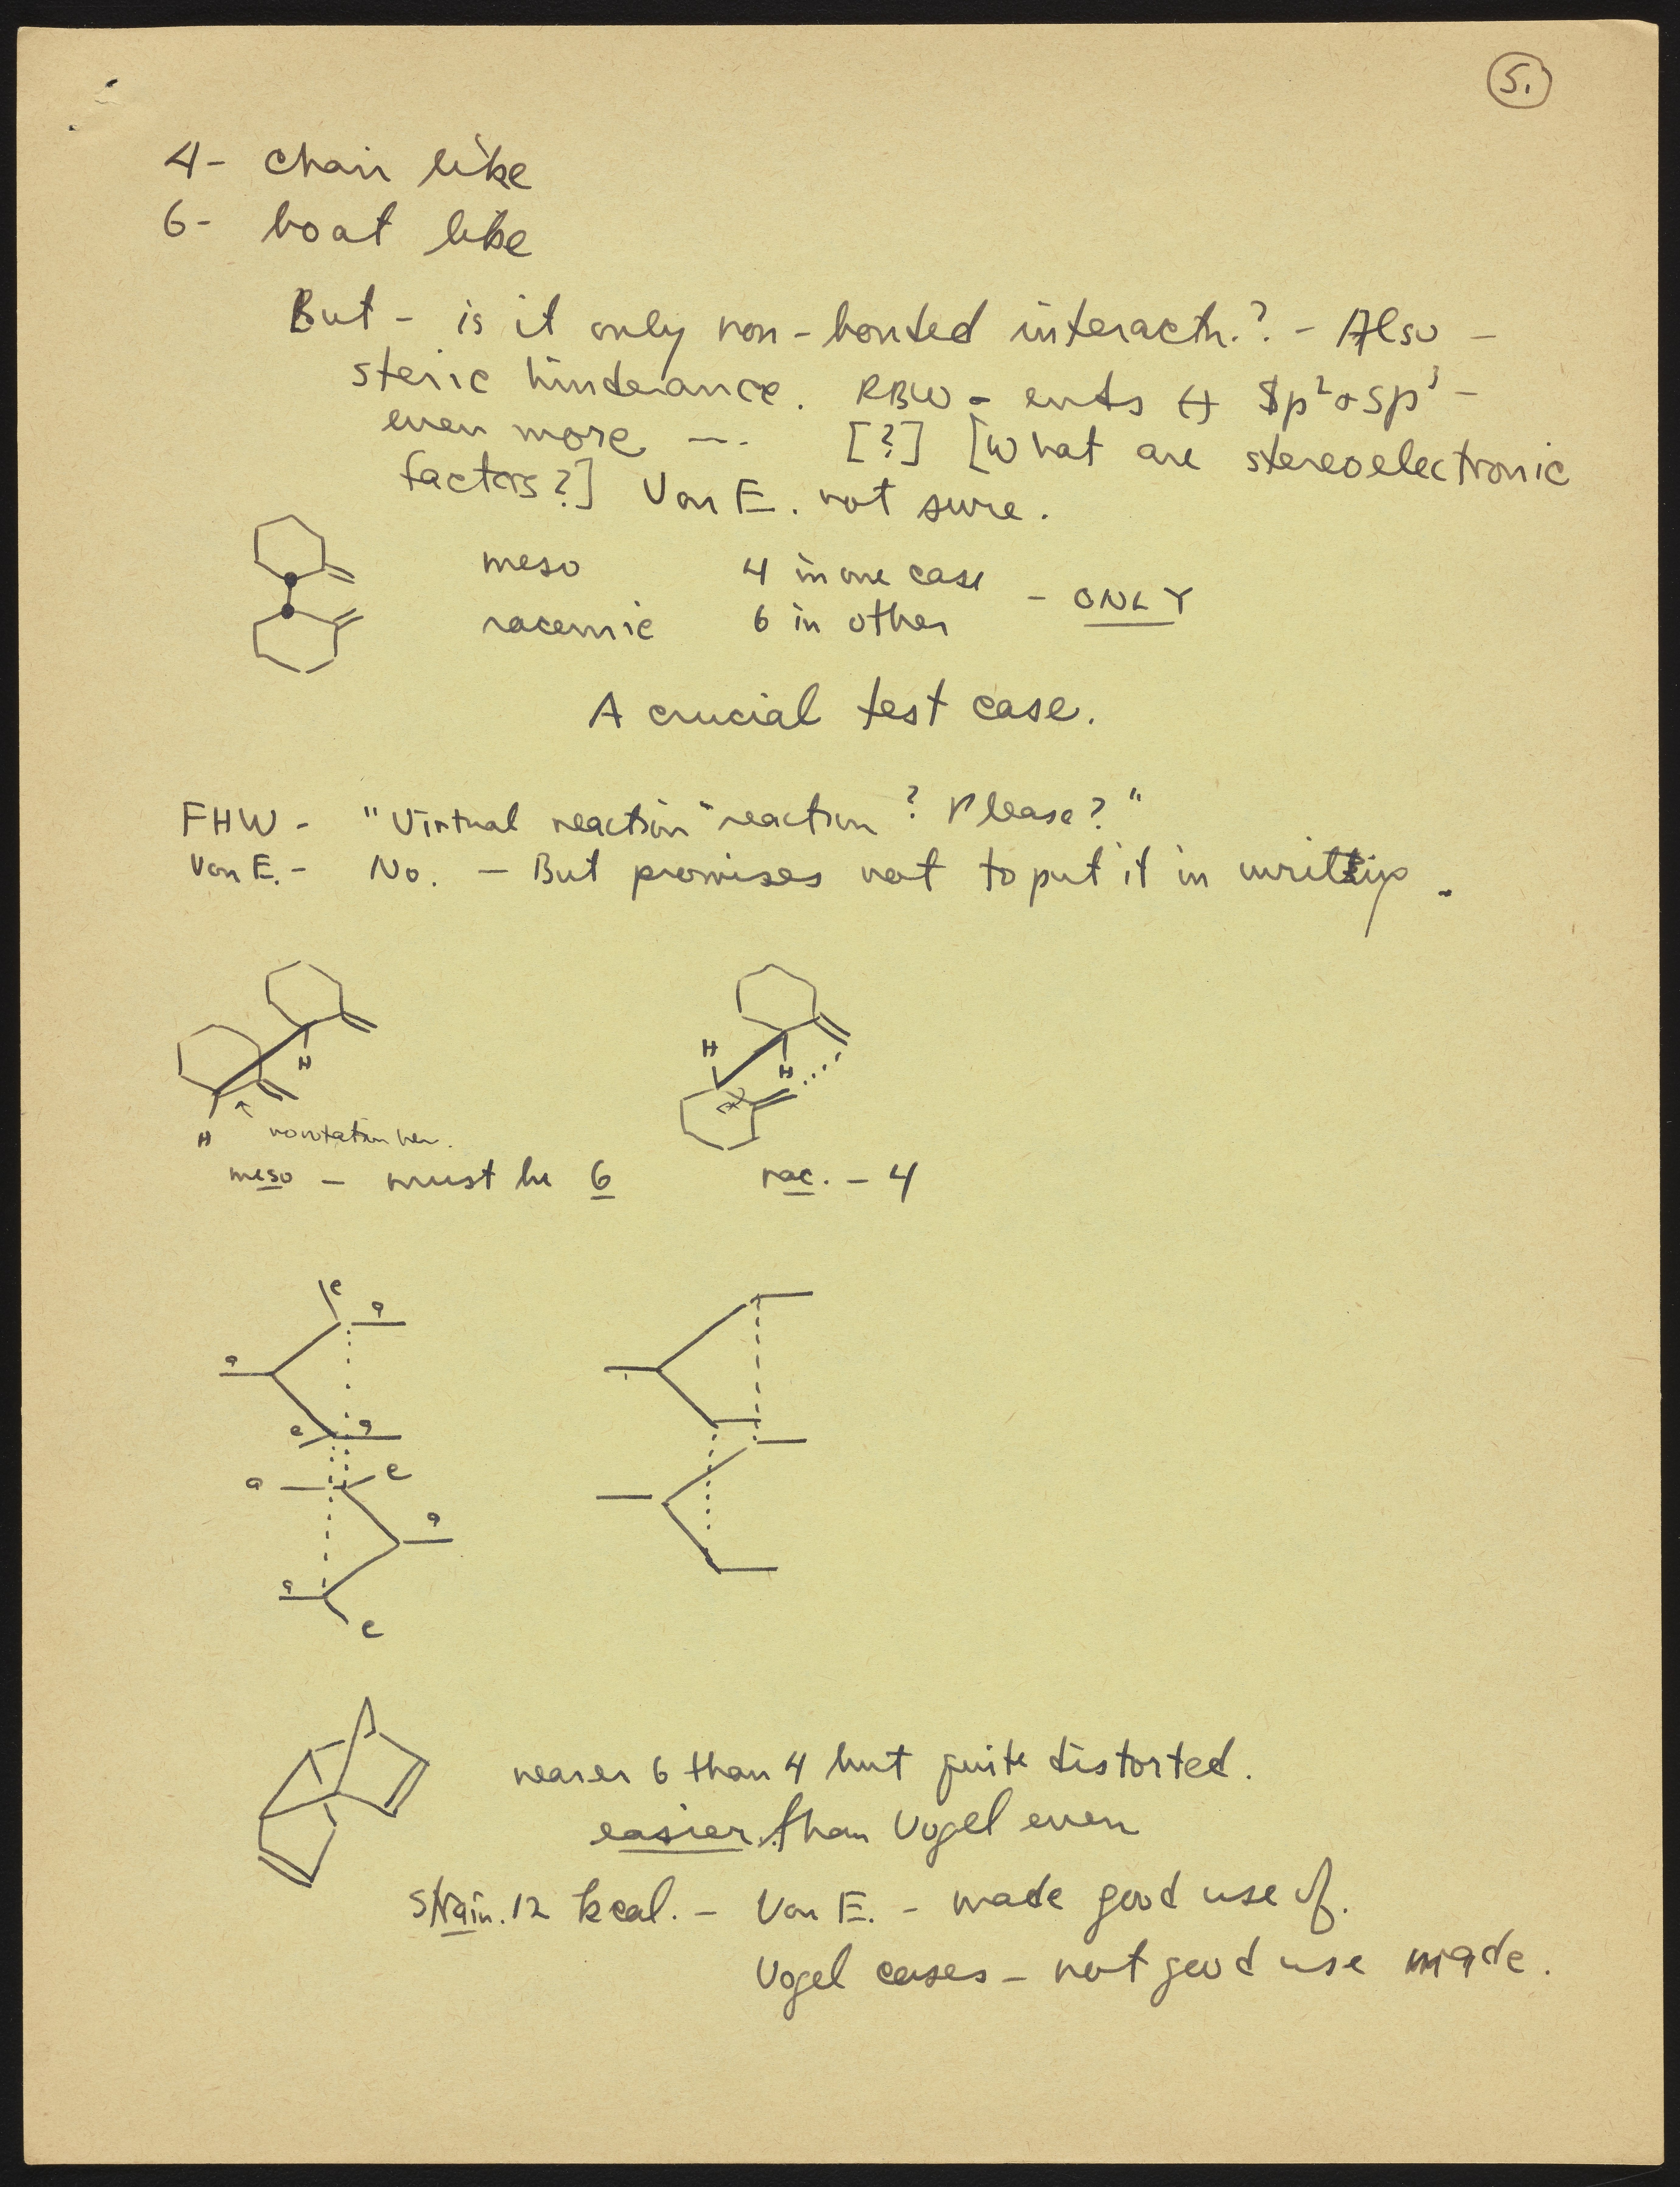 5.
4- chair like
6- boat like
But - is it only non-bonded interactn.? - Also -
steric hinderance. RBW - ends ↔ sp² or sp³ -
even more --- [?] [What are stereoelectronic
factors?] Von E. not sure.
meso 4 in one case
- ONLY
racemic 6 in other
A crucial test case.
FHW - "Virtual reaction" reaction? Please?"
Von E. - No. - But promises not to put it in writing.
H H
H H
no rotation here.
meso - must be 6 rac. - 4
e
a
a
e a
a e
a
a
e
nearer 6 than 4 but quite distorted.
easier than Vogel even
Strain. 12 kcal. - Von E. - made good use of.
Vogel cases - not good use made.